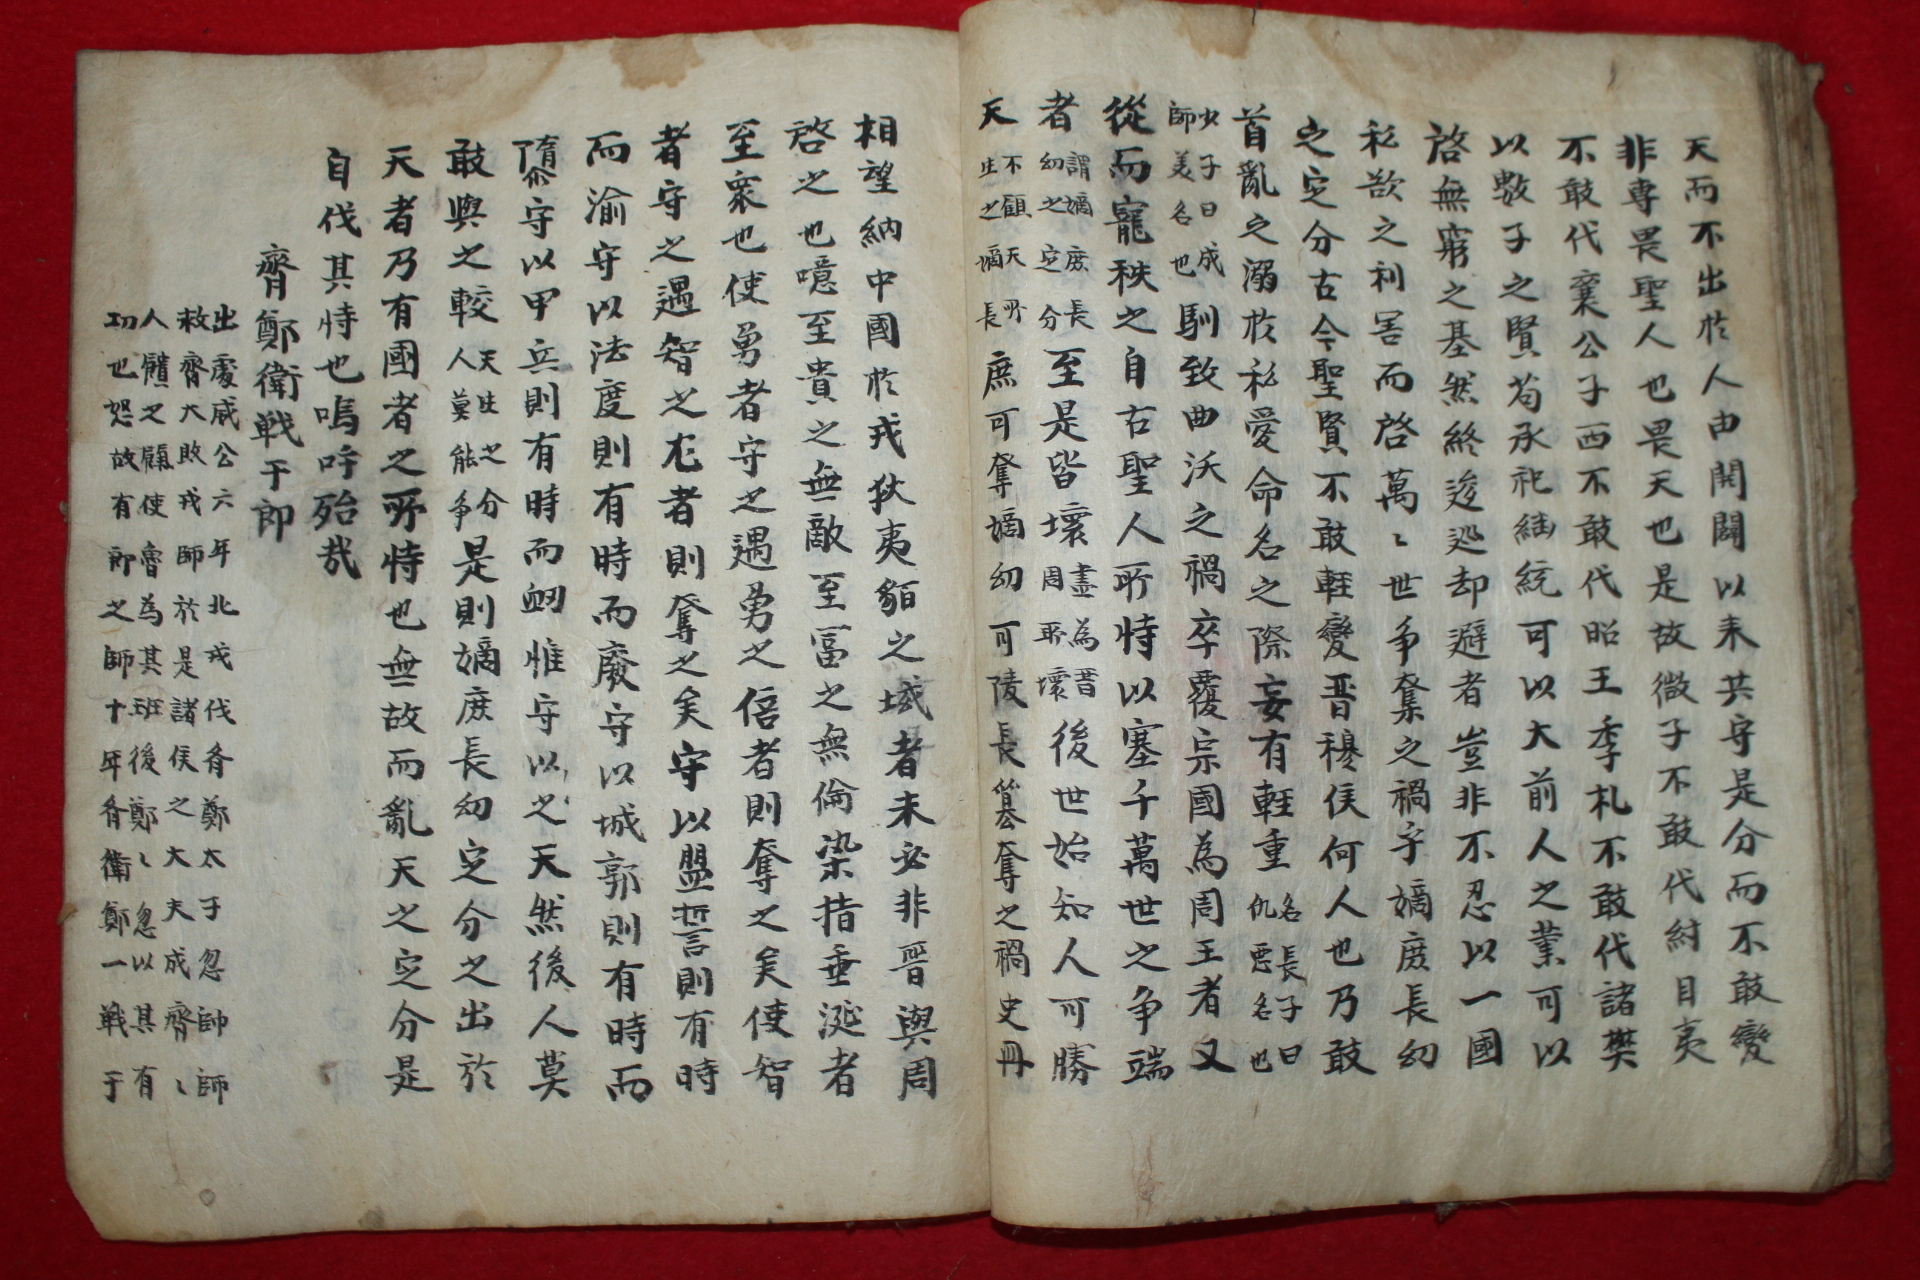 天而不出於人由開闢以來共守是分而不敢變
非専畏聖人也畏天也是故微子不敢代紂目夷
不敢代襄公子西不敢代昭王季札不敢代諸樊
以數子之賢苟承祀繼統可以大前人之業可以
啓無窮之基然終逡巡却避者豈非不忍以一國
私欲之利害而啓萬〻世爭奪之禍乎嫡庶長幼
之定分古今聖賢不敢輕變晋穆侯何人也乃敢
首亂之溺於私愛命名之際妄有輕重
名長子曰
仇惡名也
少子曰成
師美名也
馴致曲沃之禍卒覆宗國為周王者又
從而寵秩之自古聖人所恃以塞千萬世之爭端
者
謂嫡庶長
幼之定分
至是皆壞
盡為晋
周所壞
後世始知人可勝
天
不顧天所
生之嫡長
庶可奪嫡幼可陵長簒奪之禍史册
相望納中國於戎狄夷貊之域者未必非晋與周
啓之也噫至貴之無敵至冨之無倫染指垂涎者
至衆也使勇者守之遇勇之倍者則奪之矣使智
者守之遇智之尤者則奪之矣守以盟誓則有時
而渝守以法度則有時而廢守以城郭則有時而
隳守以甲兵則有時而衂惟守以之天然後人莫
敢與之較
天生之分
人莫能爭
是則嫡庶長幼定分之出於
天者乃有國者之所恃也無故而亂天之定分是
自伐其恃也嗚呼殆哉
齊鄭衛戰于郎
出處威公六年北戎伐齊鄭太子忽帥師
救齊大敗戎師於是諸侯之大夫戍齊〻
人餼之餼使魯為其班後鄭〻忽以其有
功也怒故有郎之師十年齊衛鄭一戰于